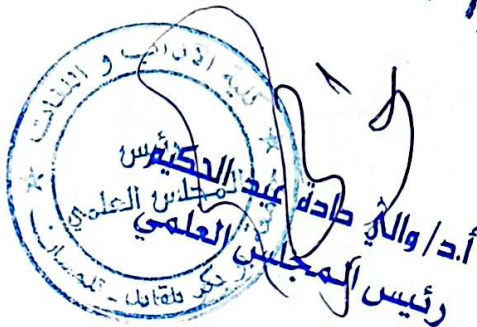 كلية الآداب و اللغات
رئيس
المجلس العلمي
بكر بلقايد - تلمسان
أ.د/ والي دادة عبد الحكيم
رئيس المجلس العلمي